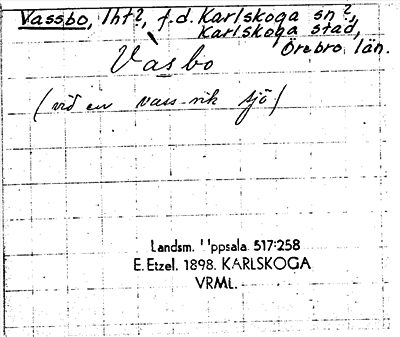 Vassbo, lht?, f.d. Karlskoga sn?,
Karlskoga stad,
Örebro län.
Vàsbo
(vid en vass-rik sjö)
Landsm. Uppsala 517:258
E. Etzel. 1898. KARLSKOGA
VRML.